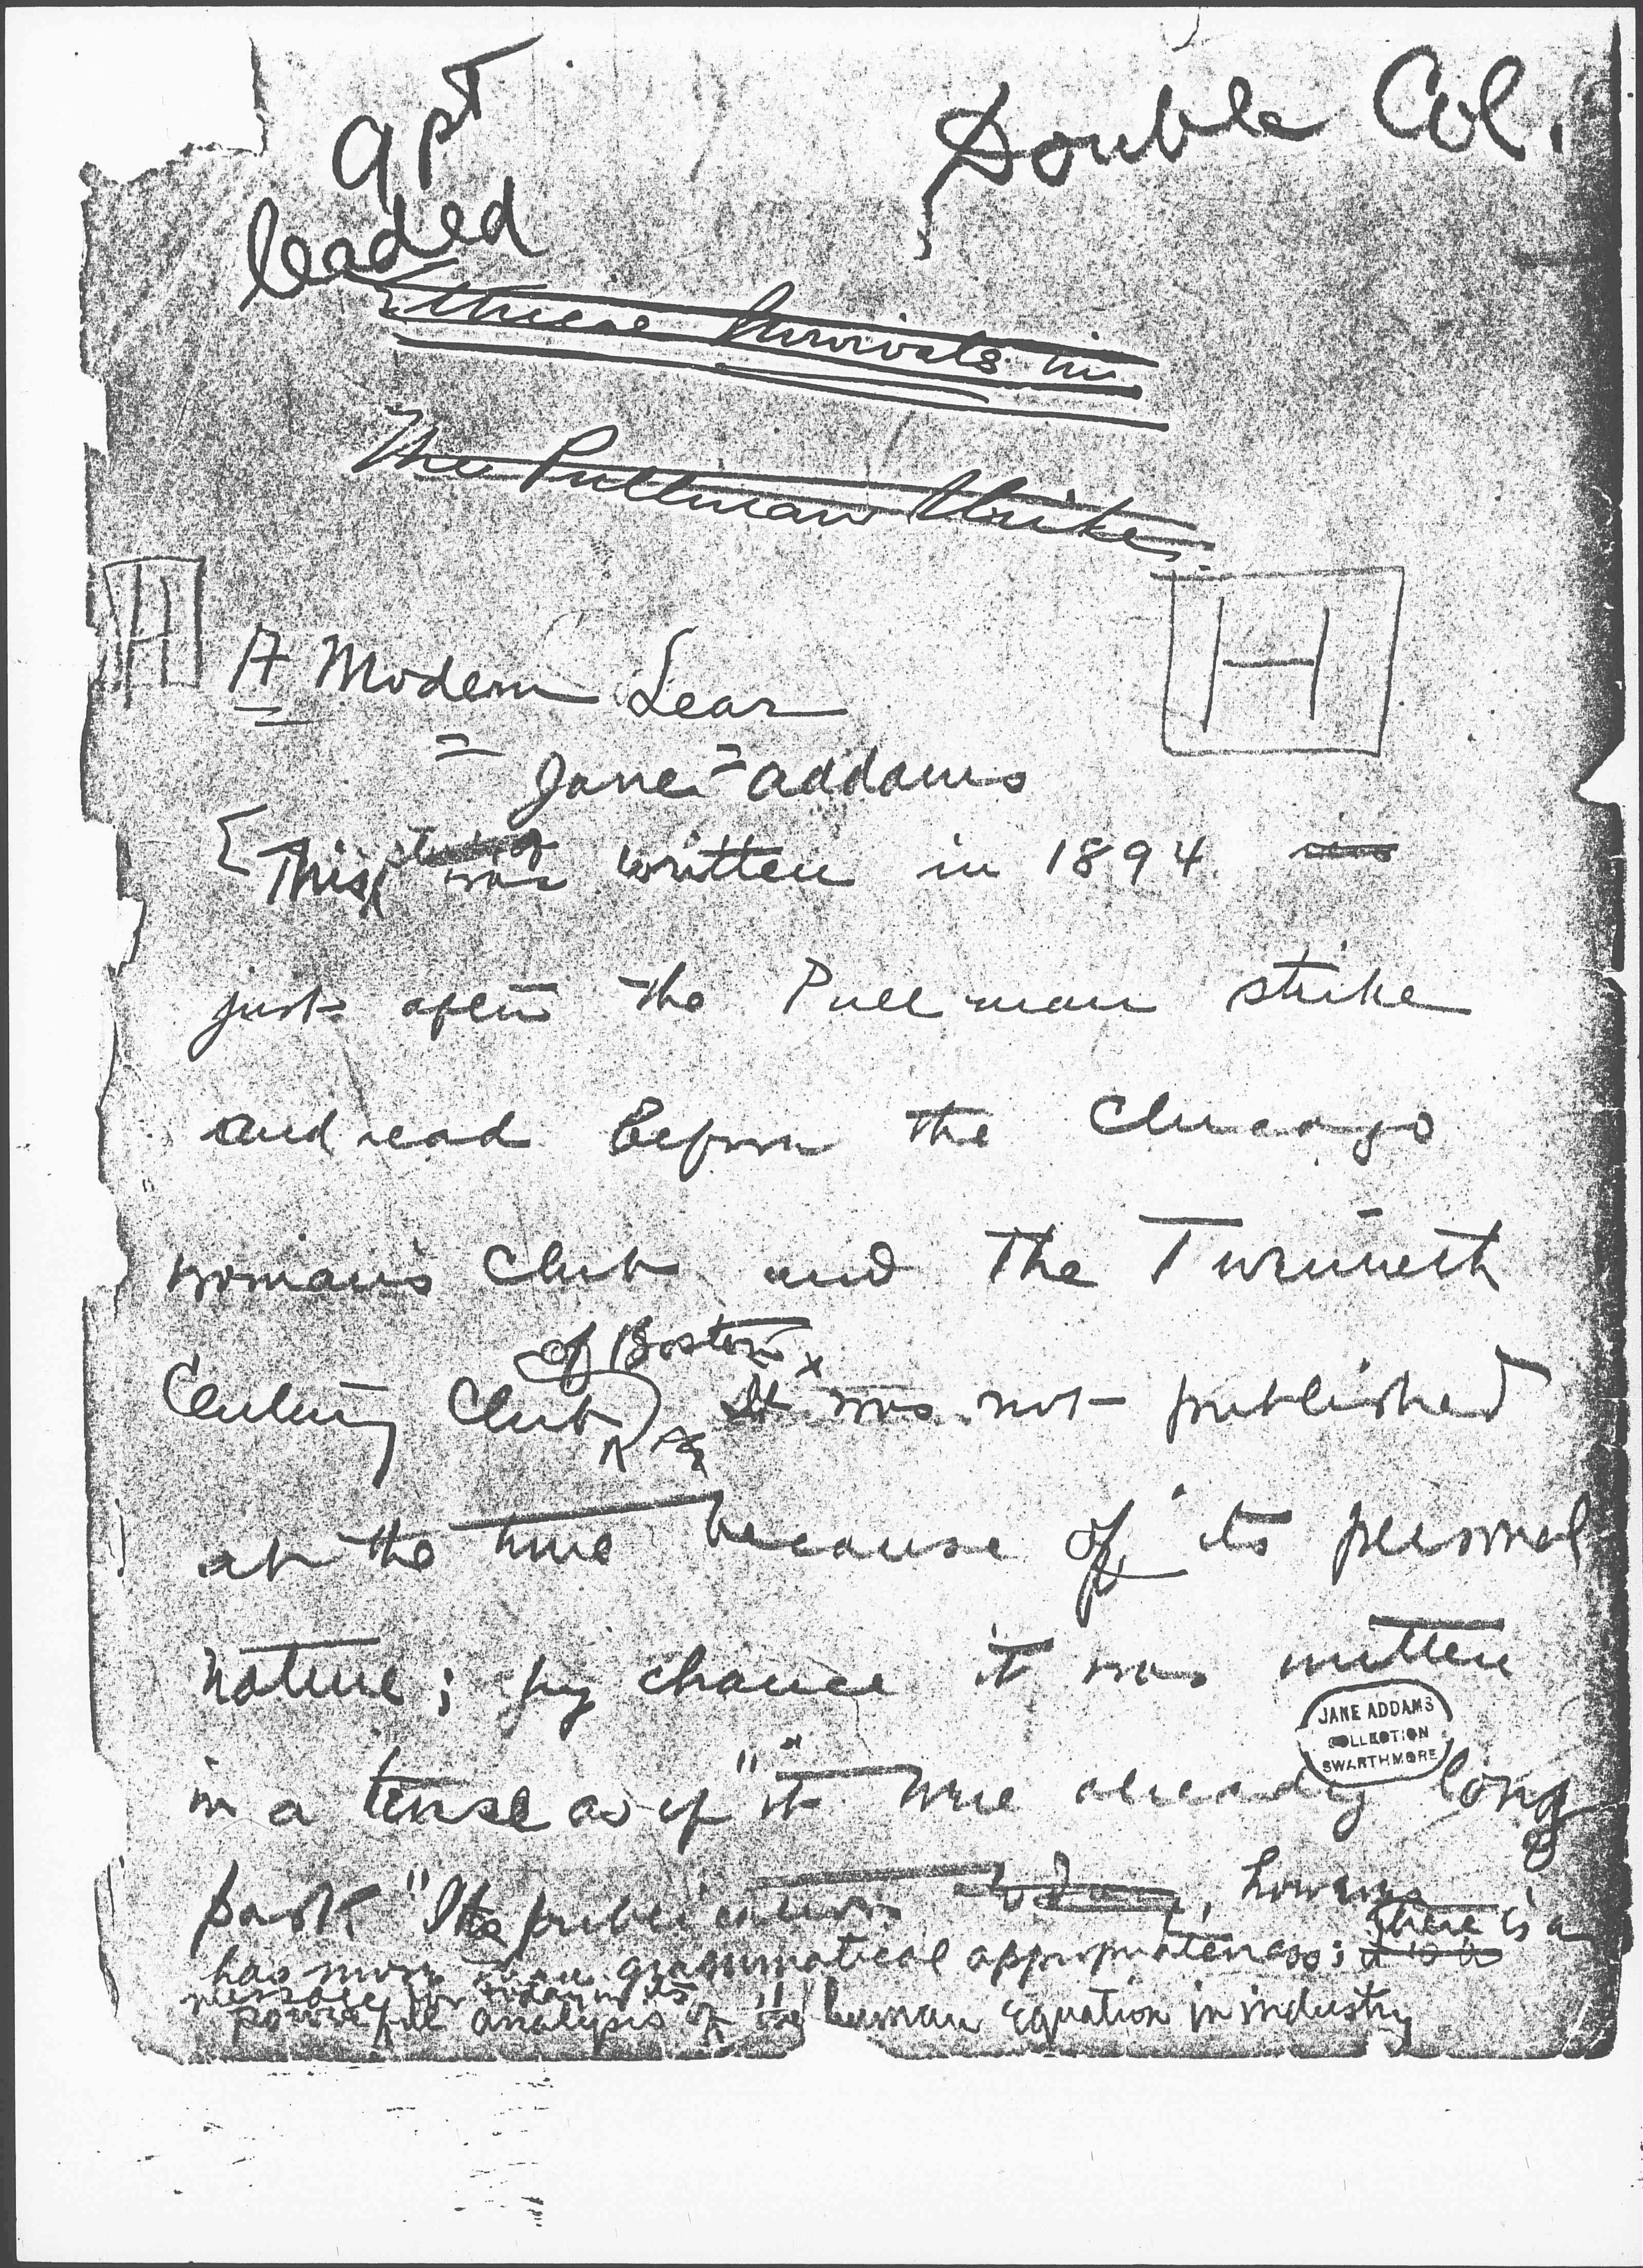 9 pt
Double Col.
leaded
Ethical Survivals in
The Pullman Strike.
H
H
A Modern Lear
Jane Addams
[This was written in 1894
just after the Pullman strike
and read before the Chicago
woman's Club and the Twentieth
of Boston
Century Club It was not published
at the time because of its personal
nature; by chance it was written
JANE ADDAMS
COLLECTION
SWARTHMORE
in a tense as if "it were already long
past" Its publication today, however
has more than grammatical appropriateness; it is a there is a
message for today in its
powerful analysis of the human equation in industry